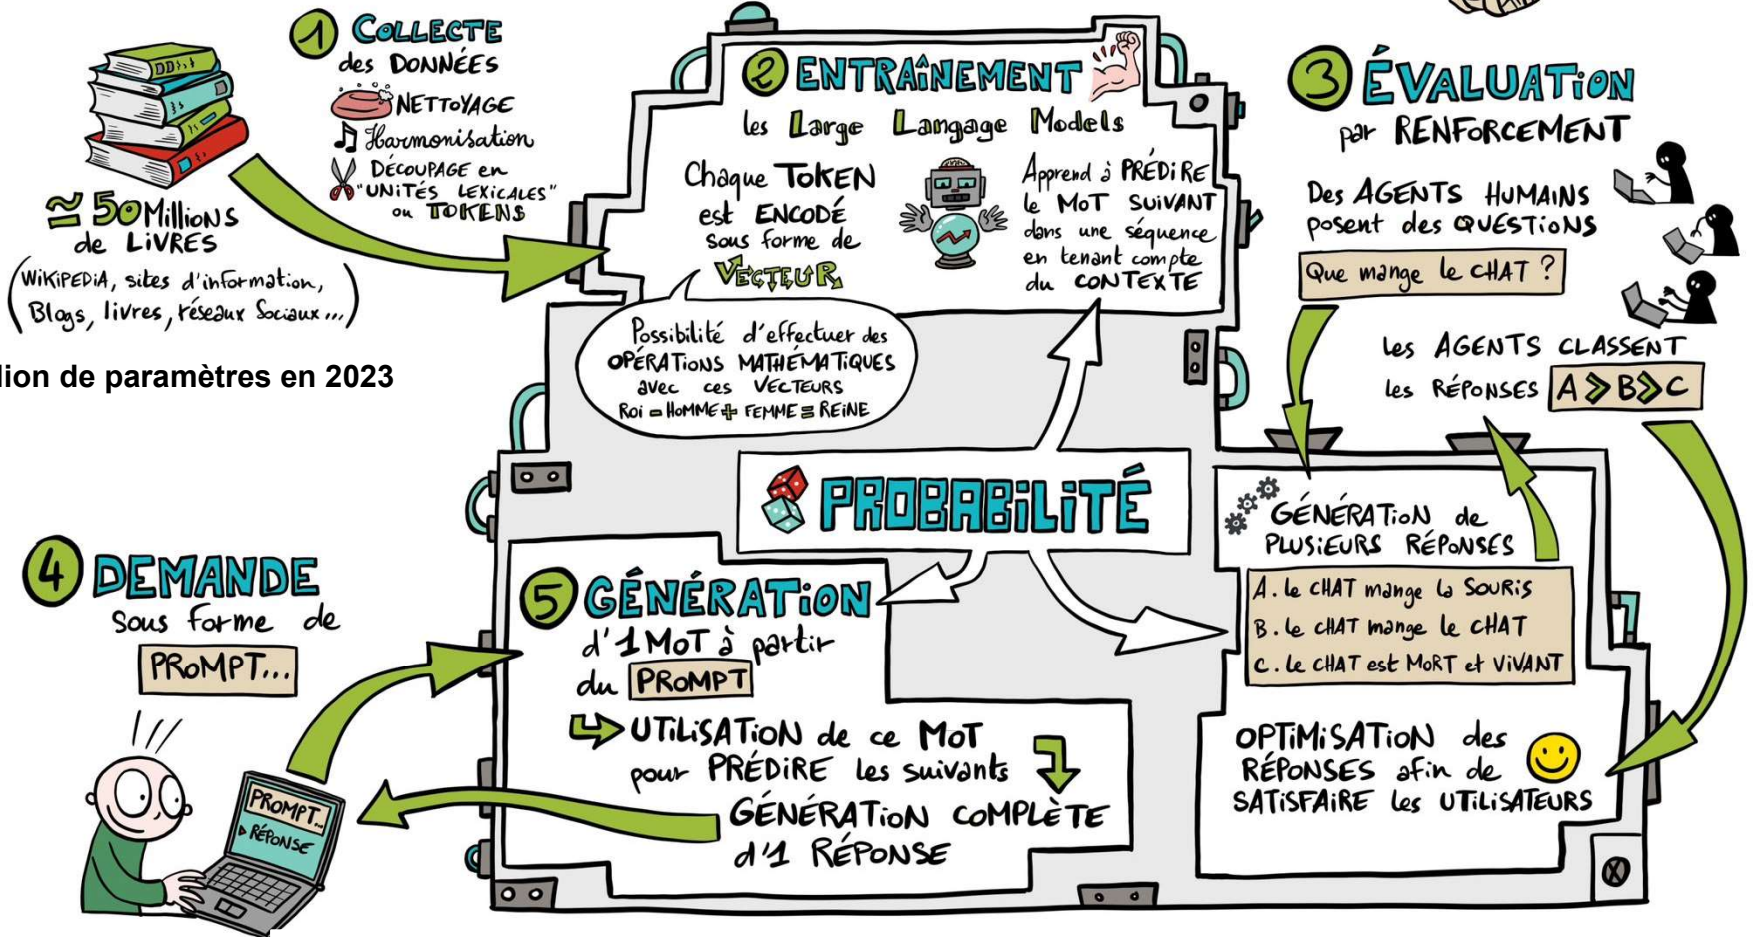 1 COLLECTE
des DONNÉES
NETTOYAGE
Harmonisation
DÉCOUPAGE en
"UNITÉS LEXICALES"
ou TOKENS
≃ 50 Millions
de LIVRES
(WIKIPEDIA, sites d'information,
Blogs, livres, réseaux Sociaux...)
lion de paramètres en 2023
2 ENTRAÎNEMENT
les Large Langage Models
Chaque TOKEN
est ENCODÉ
sous forme de
VECTEUR
Apprend à PRÉDIRE
le MOT SUIVANT
dans une séquence
en tenant compte
du CONTEXTE
Possibilité d'effectuer des
OPÉRATIONS MATHÉMATIQUES
avec ces VECTEURS
ROI - HOMME + FEMME = REINE
3 ÉVALUATION
par RENFORCEMENT
Des AGENTS HUMAINS
posent des QUESTIONS
Que mange le CHAT ?
les AGENTS CLASSENT
les RÉPONSES A > B > C
PROBABILITÉ
GÉNÉRATION de
PLUSIEURS RÉPONSES
A. le CHAT mange la SOURIS
B. le CHAT mange le CHAT
C. le CHAT est MORT et VIVANT
OPTIMISATION des
RÉPONSES afin de
SATISFAIRE les UTILISATEURS
4 DEMANDE
sous forme de
PROMPT...
PROMPT...
RÉPONSE
5 GÉNÉRATION
d'1 MOT à partir
du PROMPT
UTILISATION de ce MOT
pour PRÉDIRE les suivants
GÉNÉRATION COMPLÈTE
d'1 RÉPONSE